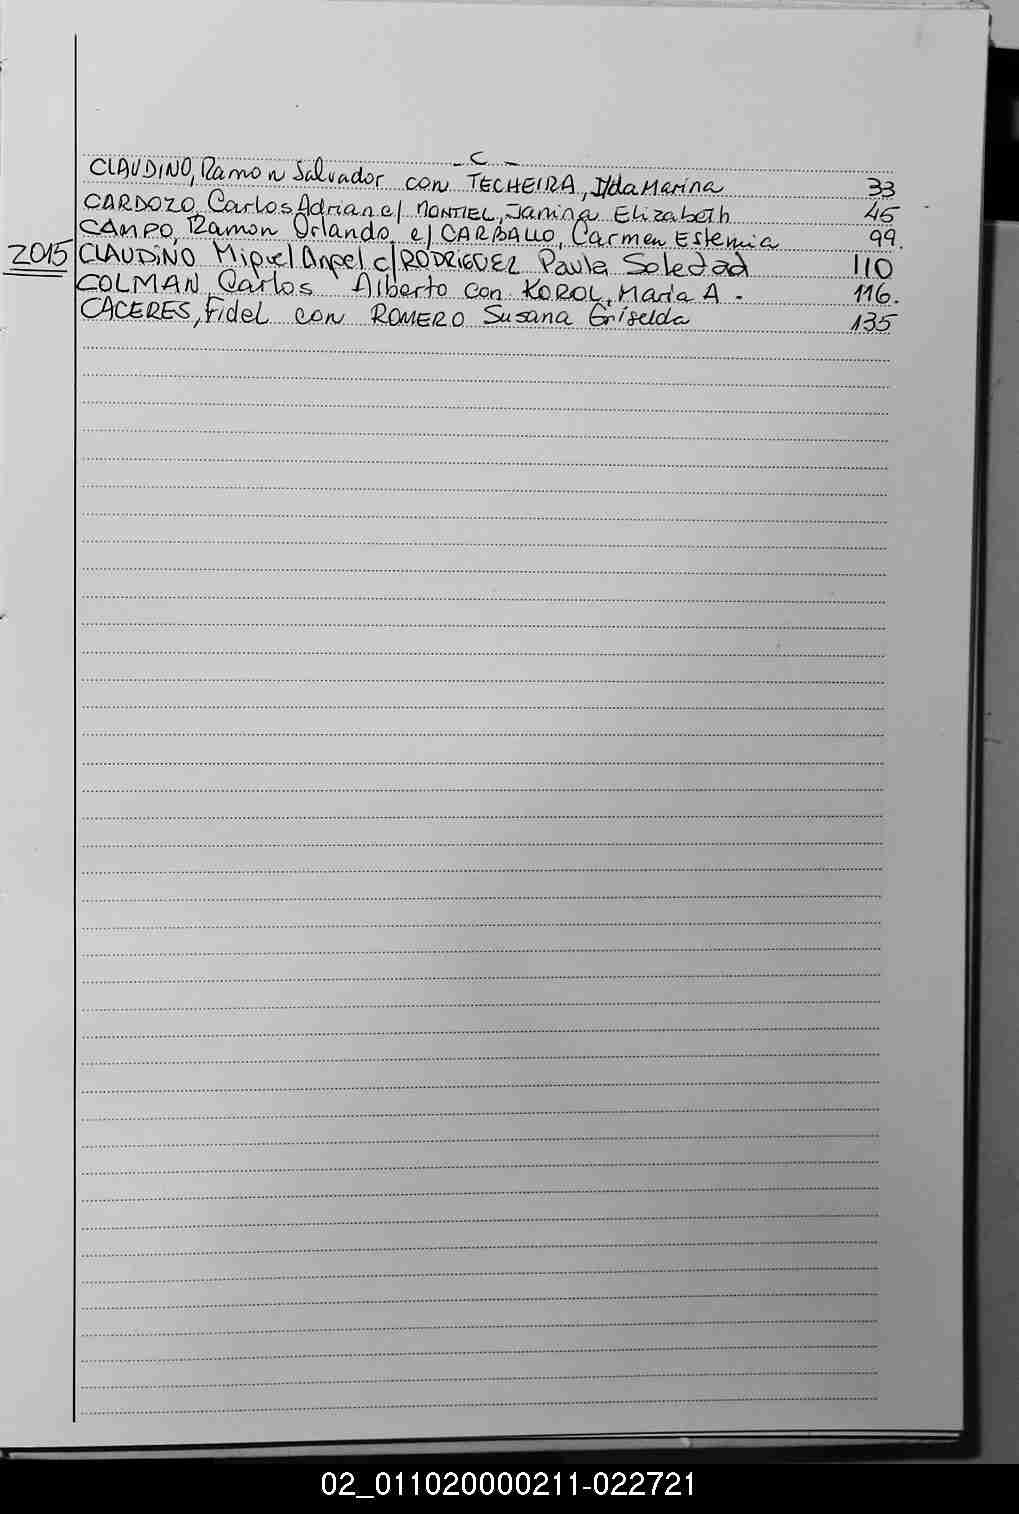 - C -
CLAUDINO, Ramon Salvador con TECHEIRA, Ilda Marina 33
CARDOZO, Carlos Adrian c/ MONTIEL, Janina Elizabeth 45
CAMPO, Ramon Orlando c/ CARBALLO, Carmen Estemia 99.
2015 CLAUDINO Miguel Angel c/ RODRIGUEZ Paula Soledad 110
COLMAN Carlos Alberto con KOROL, Maria A. 116.
CACERES, Fidel con ROMERO Susana Griselda 135
02_011020000211-022721